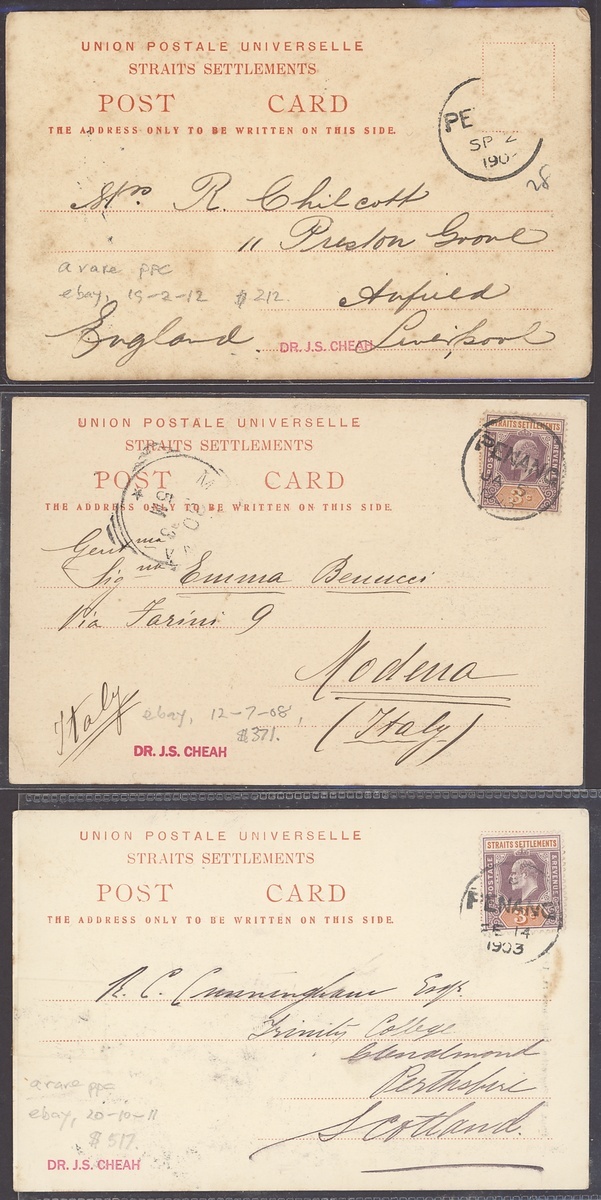 UNION POSTALE UNIVERSELLE
STRAITS SETTLEMENTS
POST CARD
THE ADDRESS ONLY TO BE WRITTEN ON THIS SIDE.
PE
SP 2
190
28
Mrs R. Chilcott
11 Preston Grove
a rare ppc
ebay, 19-2-12 $212.
Anfield
England
DR. J.S. CHEAH
Liverpool
UNION POSTALE UNIVERSELLE
STRAITS SETTLEMENTS
POST CARD
THE ADDRESS ONLY TO BE WRITTEN ON THIS SIDE.
STRAITS SETTLEMENTS
POSTAGE
REVENUE
PENANG
JA
3c
Gent.ma
Sig.na Emma Benucci
Via Farini 9
Modena
(Italy)
Italy
ebay, 12-7-08,
$371.
DR. J.S. CHEAH
UNION POSTALE UNIVERSELLE
STRAITS SETTLEMENTS
POST CARD
THE ADDRESS ONLY TO BE WRITTEN ON THIS SIDE.
STRAITS SETTLEMENTS
POSTAGE
REVENUE
PENANG
3c
FE 14
1903
R. C. Cunningham Esqr.
Trinity College
Glenalmond
Perthshire
Scotland.
a rare ppc
ebay, 20-10-11
$517.
DR. J.S. CHEAH